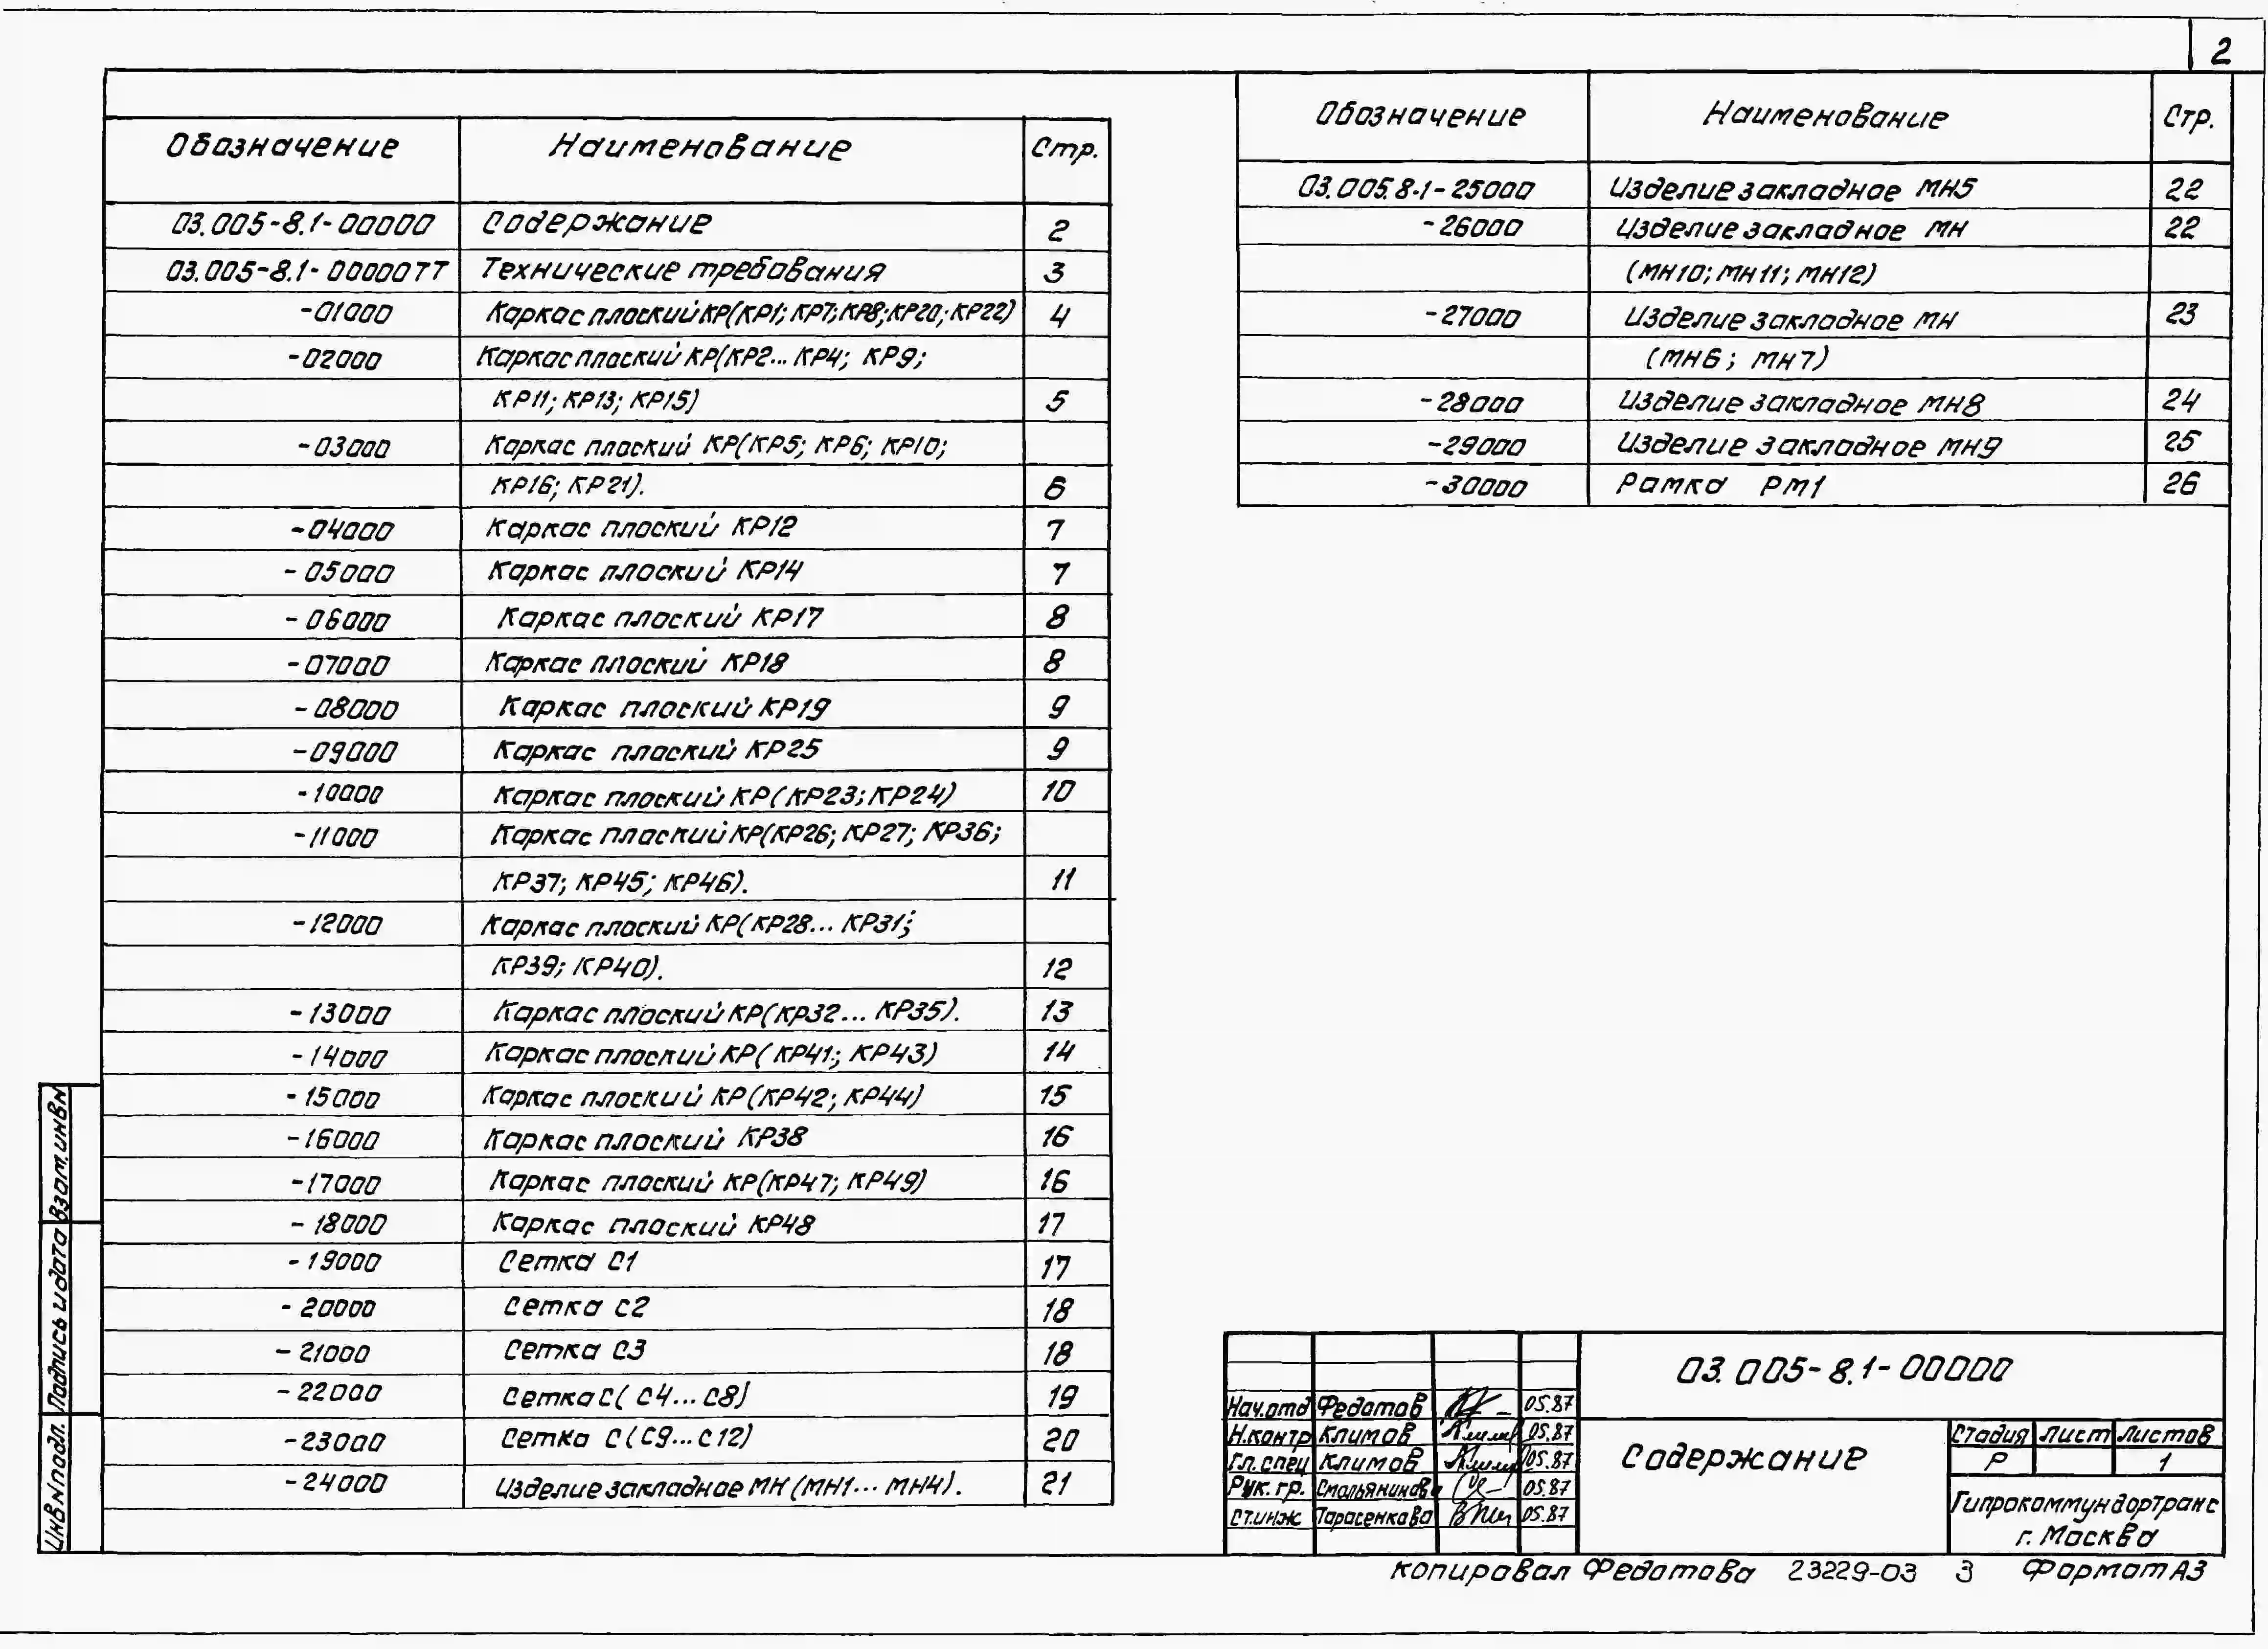 2
Обозначение Наименование Стр.
03.005-8.1-00000 Содержание 2
03.005-8.1-00000ТТ Технические требования 3
-01000 Каркас плоский КР(КР1; КР7; КР8; КР20; КР22) 4
-02000 Каркас плоский КР(КР2... КР4; КР9;
КР11; КР13; КР15) 5
-03000 Каркас плоский КР(КР5; КР6; КР10;
КР16; КР21). 6
-04000 Каркас плоский КР12 7
-05000 Каркас плоский КР14 7
-06000 Каркас плоский КР17 8
-07000 Каркас плоский КР18 8
-08000 Каркас плоский КР19 9
-09000 Каркас плоский КР25 9
-10000 Каркас плоский КР(КР23; КР24) 10
-11000 Каркас плоский КР(КР26; КР27; КР36;
КР37; КР45; КР46). 11
-12000 Каркас плоский КР(КР28... КР31;
КР39; КР40). 12
-13000 Каркас плоский КР(КР32... КР35). 13
-14000 Каркас плоский КР(КР41; КР43) 14
-15000 Каркас плоский КР(КР42; КР44) 15
-16000 Каркас плоский КР38 16
-17000 Каркас плоский КР(КР47; КР49) 16
-18000 Каркас плоский КР48 17
-19000 Сетка С1 17
-20000 Сетка С2 18
-21000 Сетка С3 18
-22000 Сетка С(С4...С8) 19
-23000 Сетка С(С9...С12) 20
-24000 Изделие закладное МН(МН1...МН4). 21
Обозначение Наименование Стр.
03.005.8.1-25000 Изделие закладное МН5 22
-26000 Изделие закладное МН 22
(МН10; МН11; МН12)
-27000 Изделие закладное МН 23
(МН6; МН7)
-28000 Изделие закладное МН8 24
-29000 Изделие закладное МН9 25
-30000 Рамка РМ1 26
Взам.инв№
Подпись и дата
Инв№подл.
03.005-8.1-00000
Нач.отд Федотов 05.87
Н.контр Климов 05.87
Гл.спец Климов 05.87
Рук.гр. Смольянинова 05.87
Ст.инж Тарасенкова 05.87
Содержание
Стадия Лист Листов
Р 1
Гипрокоммундортранс
г. Москва
Копировал Федотова 23229-03 3 Формат А3